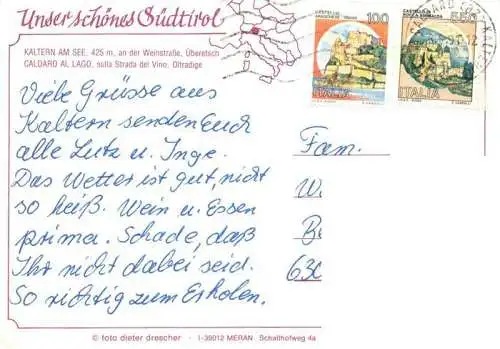 Unser schönes Südtirol
KALTERN AM SEE, 425 m, an der Weinstraße, Überetsch
CALDARO AL LAGO, sulla Strada del Vino, Oltradige
100
550
ITALIA
ITALIA
Viele Grüsse aus
Kaltern senden Euch
alle Lutz u. Inge.
Das Wetter ist gut, nicht
so heiß. Wein u. Essen
prima. Schade, daß
Ihr nicht dabei seid.
So richtig zum Erholen.
Fam.
W
B
630
© foto dieter drescher · I-39012 MERAN Schallhofweg 4a